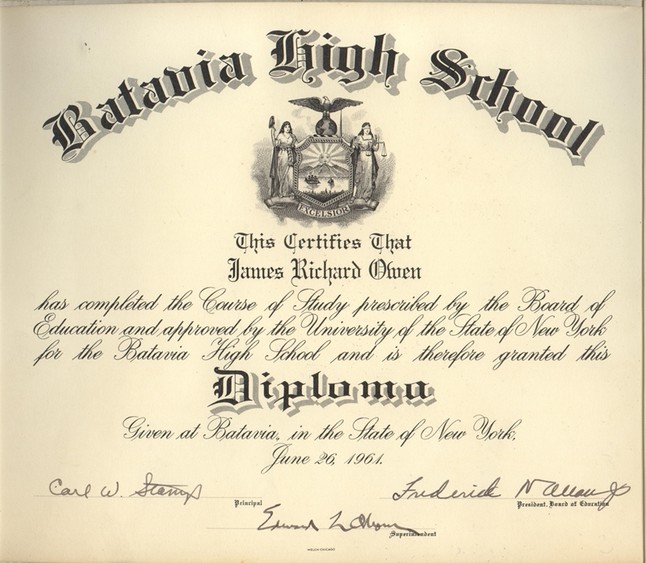 Batavia High School
EXCELSIOR
This Certifies That
James Richard Owen
has completed the Course of Study prescribed by the Board of
Education and approved by the University of the State of New York
for the Batavia High School and is therefore granted this
Diploma
Given at Batavia, in the State of New York,
June 26, 1961.
Carl W. Stamp Frederick N
Principal President, Board of Education
Edward
Superintendent